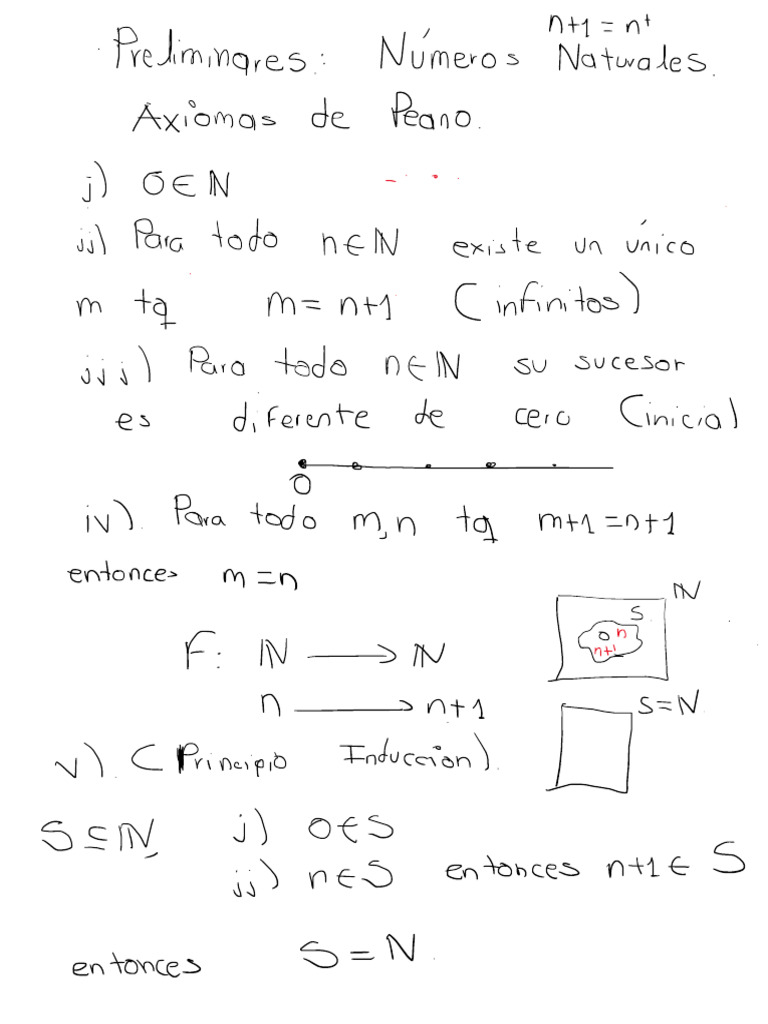 n+1 = n⁺
Preliminares: Números Naturales.
Axiomas de Peano.
i) 0∈ℕ
ii) Para todo n∈ℕ existe un único
m tq m = n+1 (infinitos)
iii) Para todo n∈ℕ su sucesor
es diferente de cero (inicial)
0
iv). Para todo m,n tq m+1=n+1
entonces m=n
ℕ
S
0 n
n+1
F: ℕ ⟶ ℕ
n ⟶ n+1
S=ℕ
v). (Principio Induccion).
S⊆ℕ, i) 0∈S
ii) n∈S entonces n+1∈ S
entonces S=ℕ.